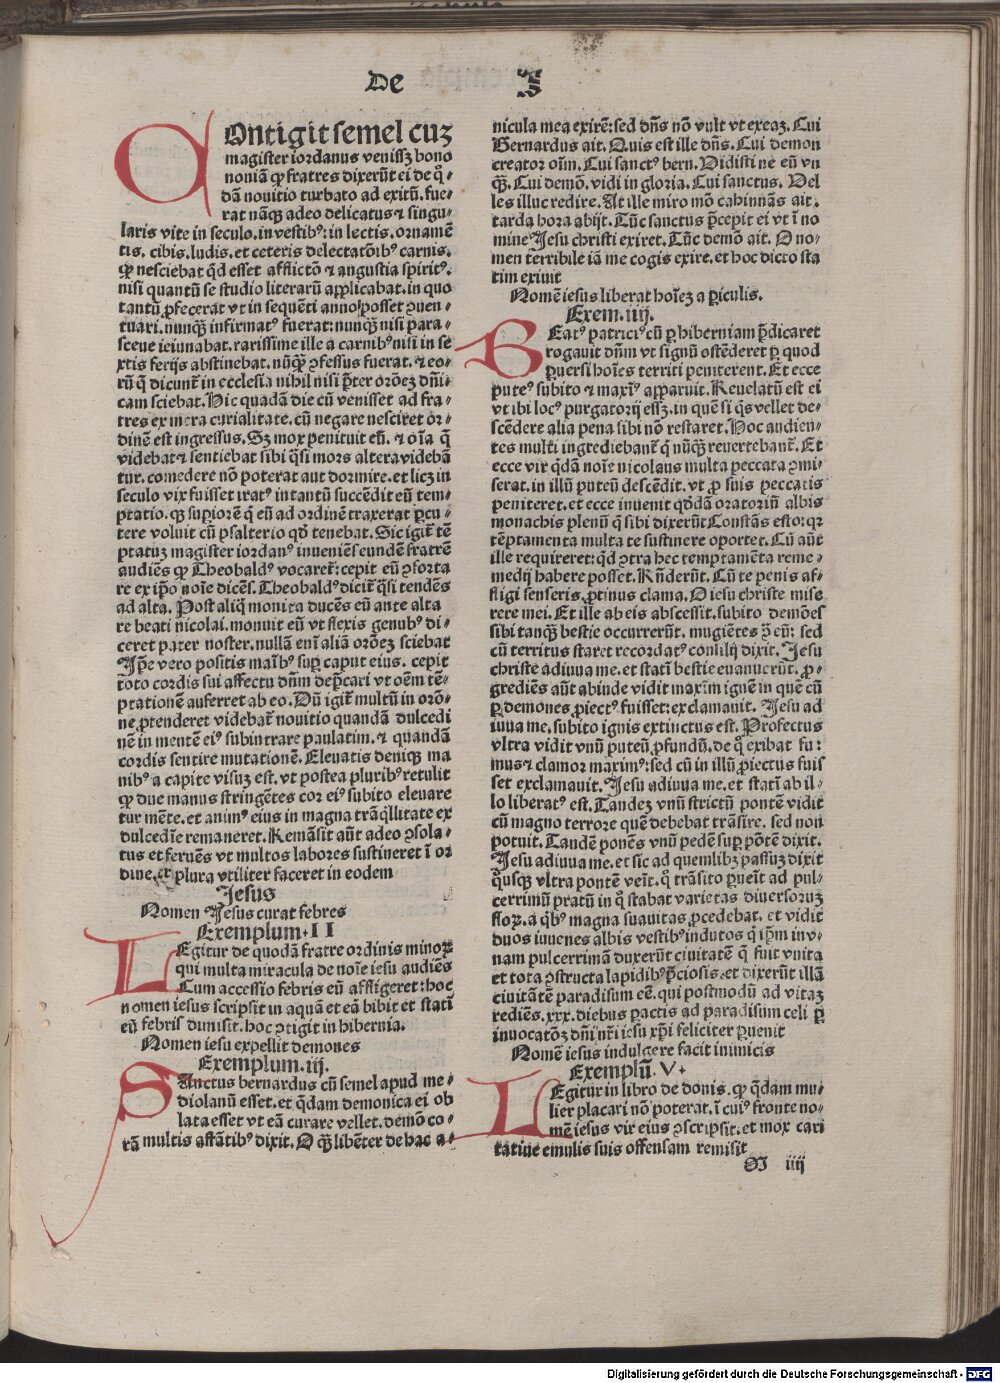 De I
COntigit semel cuȝ
magister iordanus venissȝ bono
noniā ꝙ fratres dixerūt ei de q̄-
dā nouitio turbato ad exitū. fue-
rat nāqꝫ adeo delicatus ⁊ singu-
laris vite in seculo. in vestibꝰ: in lectis. ornamē
tis. cibis. ludis. et ceteris delectatōibꝰ carnis.
ꝙ nesciebat qd̄ esset afflictō ⁊ angustia spiritꝰ.
nisi quantū se studio literarū applicabat. in quo
tantū ꝓfecerat vt in sequēti anno posset ꝯuen-
tuari. nunqꝫ infirmatꝰ fuerat: nunqꝫ nisi para-
sceue ieiunabat. rarissime ille a carnibꝰ nisi in se
xtis ferijs abstinebat. nūqꝫ ꝯfessus fuerat. ⁊ eo-
rū q̄ dicunt̄ in ecclesia nihil nisi p̄ter orōeȝ dn̄i-
cam sciebat. Hic quadā die cū venisset ad fra-
tres ex mera curialitate. cū negare nesciret or-
dinē est ingressus. Sȝ mox penituit eū. ⁊ oīa q̄
videbat ⁊ sentiebat sibi q̄si mors altera videbā
tur. comedere nō poterat aut dormire. et licȝ in
seculo vix fuisset iratꝰ in tantū succēdit eū tem-
ptatio. qꝫ supiorē q̄ eū ad ordinē traxerat ꝑcu-
tere voluit cū psalterio qd̄ tenebat. Sic igit̄ tē
ptatuȝ magister iordanꝰ inueniēs eundē fratrē
audiēs ꝙ Theobaldꝰ vocaret̄: cepit eū ꝯforta
re ex ip̄o noīe dicēs. Theobaldꝰ dicit̄ q̄si tendēs
ad alta. Post aliq̄ monita ducēs eū ante alta
re beati nicolai. monuit eū vt flexis genubꝰ di-
ceret pater noster. nullā eni aliā orōeȝ sciebat
Ip̄e vero positis maībꝰ suꝑ caput eius. cepit
toto cordis sui affectu dn̄m dep̄cari vt oēm tē-
ptationē auferret ab eo. Dū igit̄ multū in orō-
ne ꝓtenderet videbat̄ nouitio quandā dulcedi
nē in mentē eiꝰ subintrare paulatim. ⁊ quandā
cordis sentire mutationē. Eleuatis deniqꝫ ma
nibꝰ a capite visuȝ est. vt postea pluribꝰ retulit
ꝙ due manus stringētes cor eiꝰ subito eleuare
tur mēte. et animꝰ eius in magna trāq̄llitate ex
dulcedīe remaneret. Remāsit aūt adeo ꝯsola-
tus et feruēs vt multos labores sustineret ī or
dine. et plura vtiliter faceret in eodem
Jesus
Nomen Jesus curat febres
Exemplum. II
LEgitur de quodā fratre ordinis minorꝝ
qui multa miracula de noīe iesu audiēs
Cum accessio febris eū affligeret: hoc
nomen iesus scripsit in aquā et eā bibit et statī
eū febris dimisit. hoc ꝯtigit in hibernia.
Nomen iesu expellit demones
Exemplum. iij.
SAnctus bernardus cū semel apud me-
diolanū esset. et q̄dam demonica ei ob
lata esset vt eā curare vellet. demō co-
rā multis astātibꝰ dixit. O qꝫ libēter de hac a-
nicula mea exirē: sed dn̄s nō vult vt exeaȝ. Cui
Bernardus ait. Quis est ille dn̄s. Cui demon
creator oīm. Cui sanctꝰ bern. Vidisti ne eū vn
qꝫ. Cui demō. vidi in gloria. Cui sanctus. Vel
les illuc redire. At ille miro mō cahinnās ait.
tarda hora abijt. Tūc sanctus p̄cepit ei vt ī no
mine Jesu christi exiret. Tūc demō ait. O no-
men terribile iā me cogis exire. et hoc dicto sta
tim exiuit
Nomē iesus liberat hoīeȝ a ꝑiculis.
Exem. iiij.
BEatꝰ patriciꝰ cū ꝑ hiberniam p̄dicaret
rogauit dn̄m vt signū ostēderet ꝑ quod
ꝑuersi hoīes territi peniterent. Et ecce
puteꝰ subito ⁊ maxīꝰ apparuit. Reuelatū est ei
vt ibi locꝰ purgatorij essȝ. in quē si q̄s vellet de-
scēdere alia pena sibi nō restaret. Hoc audien-
tes multi ingrediebant̄ q̄ nūqꝫ reuertebant̄. Et
ecce vir q̄dā noīe nicolaus multa peccata ꝯmi-
serat. in illū puteū descēdit. vt ꝓ suis peccatis
peniteret. et ecce inuenit qd̄dā oratoriū albis
monachis plenū q̄ sibi dixerūt Constās esto: qꝛ
tēptamenta multa te sustinere oportet. Cū aūt
ille requireret: qd̄ ꝯtra hec temptamēta reme-
medij habere posset. Rn̄derūt. Cū te penis af-
fligi senseris. ꝓtinus clama. O iesu christe mise
rere mei. Et ille ab eis abscessit. subito demōes
sibi tanqꝫ bestie occurrerūt. mugiētes ꝯ̄ eū: sed
cū territus staret recordatꝰ consilij dixit. Jesu
christe adiuua me. et statī bestie euanuerūt. ꝓ-
grediēs aūt abinde vidit maxīm ignē in quē cū
ꝑ demones ꝓiectꝰ fuisset: exclamauit. Jesu ad
iuua me. subito ignis extinctus est. Profectus
vltra vidit vnū puteū ꝓfundū. de q̄ exibat fu-
mus ⁊ clamor maximꝰ: sed cū in illū ꝓiectus fuis
set exclamauit. Jesu adiuua me. et statī ab il-
lo liberatꝰ est. Tandeȝ vnū strictū pontē vidit
cū magno terrore quē debebat trāsire. sed non
potuit. Tandē ponēs vnū pedē suꝑ pōtē dixit.
Jesu adiuua me. et sic ad quemlibȝ passuȝ dixit
q̄usqꝫ vltra pontē veīt. q̄ trāsito ꝑueīt ad pul-
cerrimū pratū in q̄ stabat varietas diuersoruȝ
florꝝ. a q̄bꝰ magna suauitas ꝓcedebat. et vidit
duos iuuenes albis vestibꝰ indutos q̄ ip̄m in v-
nam pulcerrimā duxerūt ciuitatē q̄ fuit vnita
et tota ꝯstructa lapidibꝰ p̄ciosis. et dixerūt illā
ciuitātē paradisum eē. qui postmodū ad vitaȝ
rediēs. xxx. diebus ꝑactis ad paradisum celi ꝑ
inuocatōȝ dn̄i nr̄i iesu xp̄i feliciter ꝑuenit
Nomē iesus indulgere facit inimicis
Exemplū. V.
LEgitur in libro de donis. ꝙ q̄dam mu-
lier placari nō poterat. ī cuiꝰ fronte no-
mē iesus vir eius ꝯscripsit. et mox cari
tatiue emulis suis offensam remisit
M iiij
Digitalisierung gefördert durch die Deutsche Forschungsgemeinschaft - DFG